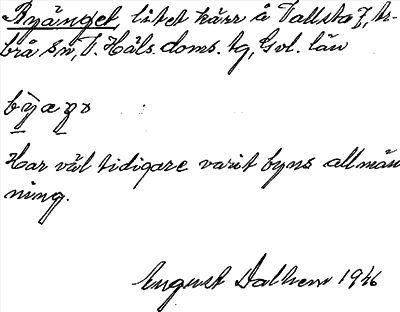 Byänget, litet kärr å Tallsta 7, Ar-
brå sn, V. Häls. doms. tg, Gvl. län
Har väl tidigare varit byns allmän
ning.
August Dalhem 1946